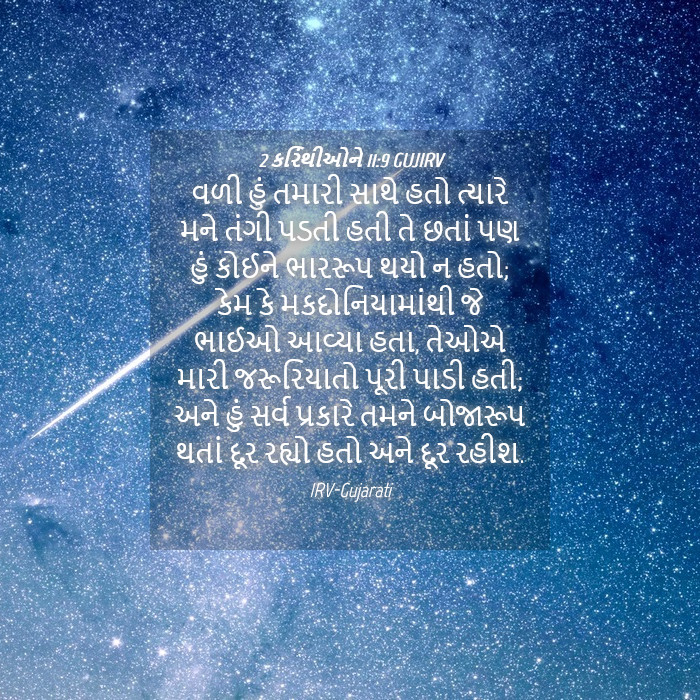 2 કરિંથીઓને 11:9 GUJIRV
વળી હું તમારી સાથે હતો ત્યારે
મને તંગી પડતી હતી તે છતાં પણ
હું કોઈને ભારરૂપ થયો ન હતો;
કેમ કે મકદોનિયામાંથી જે
ભાઈઓ આવ્યા હતા, તેઓએ
મારી જરૂરિયાતો પૂરી પાડી હતી;
અને હું સર્વ પ્રકારે તમને બોજારૂપ
થતાં દૂર રહ્યો હતો અને દૂર રહીશ.
IRV-Gujarati